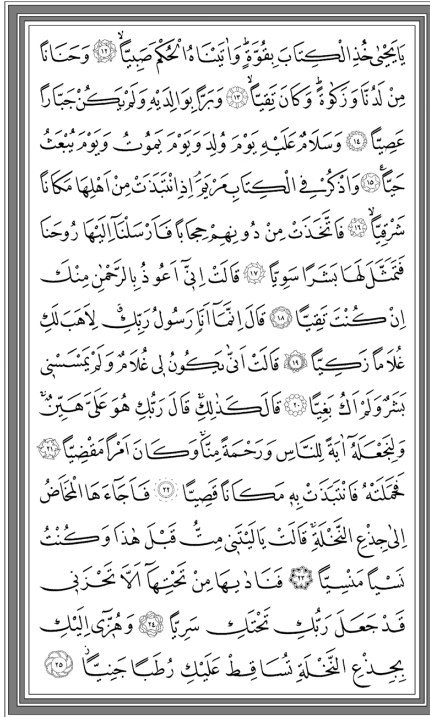 يَا يَحْيٰى خُذِ الْكِتَابَ بِقُوَّةٍۜ وَاٰتَيْنَاهُ الْحُكْمَ صَبِيًّاۙ ﴿١٢﴾ وَحَنَانًا
مِنْ لَدُنَّا وَزَكٰوةًۜ وَكَانَ تَقِيًّاۙ ﴿١٣﴾ وَبَرًّا بِوَالِدَيْهِ وَلَمْ يَكُنْ جَبَّارًا
عَصِيًّا ﴿١٤﴾ وَسَلَامٌ عَلَيْهِ يَوْمَ وُلِدَ وَيَوْمَ يَمُوتُ وَيَوْمَ يُبْعَثُ
حَيًّا۟ ﴿١٥﴾ وَاذْكُرْ فِي الْكِتَابِ مَرْيَمَۢ اِذِ انْتَبَذَتْ مِنْ اَهْلِهَا مَكَانًا
شَرْقِيًّاۙ ﴿١٦﴾ فَاتَّخَذَتْ مِنْ دُونِهِمْ حِجَابًا فَاَرْسَلْنَٓا اِلَيْهَا رُوحَنَا
فَتَمَثَّلَ لَهَا بَشَرًا سَوِيًّا ﴿١٧﴾ قَالَتْ اِنّ۪ٓي اَعُوذُ بِالرَّحْمٰنِ مِنْكَ
اِنْ كُنْتَ تَقِيًّا ﴿١٨﴾ قَالَ اِنَّمَٓا اَنَا۬ رَسُولُ رَبِّكِۗ لِاَهَبَ لَكِ
غُلَامًا زَكِيًّا ﴿١٩﴾ قَالَتْ اَنّٰى يَكُونُ ل۪ي غُلَامٌ وَلَمْ يَمْسَسْن۪ي
بَشَرٌ وَلَمْ اَكُ بَغِيًّا ﴿٢٠﴾ قَالَ كَذٰلِكِۚ قَالَ رَبُّكِ هُوَ عَلَيَّ هَيِّنٌۚ
وَلِنَجْعَلَهُٓ اٰيَةً لِلنَّاسِ وَرَحْمَةً مِنَّاۚ وَكَانَ اَمْرًا مَقْضِيًّا ﴿٢١﴾
فَحَمَلَتْهُ فَانْتَبَذَتْ بِه۪ مَكَانًا قَصِيًّا ﴿٢٢﴾ فَاَجَٓاءَهَا الْمَخَاضُ
اِلٰى جِذْعِ النَّخْلَةِۚ قَالَتْ يَا لَيْتَن۪ي مِتُّ قَبْلَ هٰذَا وَكُنْتُ
نَسْيًا مَنْسِيًّا ﴿٢٣﴾ فَنَادٰيهَا مِنْ تَحْتِهَٓا اَلَّا تَحْزَن۪ي
قَدْ جَعَلَ رَبُّكِ تَحْتَكِ سَرِيًّا ﴿٢٤﴾ وَهُزّ۪ٓي اِلَيْكِ
بِجِذْعِ النَّخْلَةِ تُسَاقِطْ عَلَيْكِ رُطَبًا جَنِيًّاۘ ﴿٢٥﴾